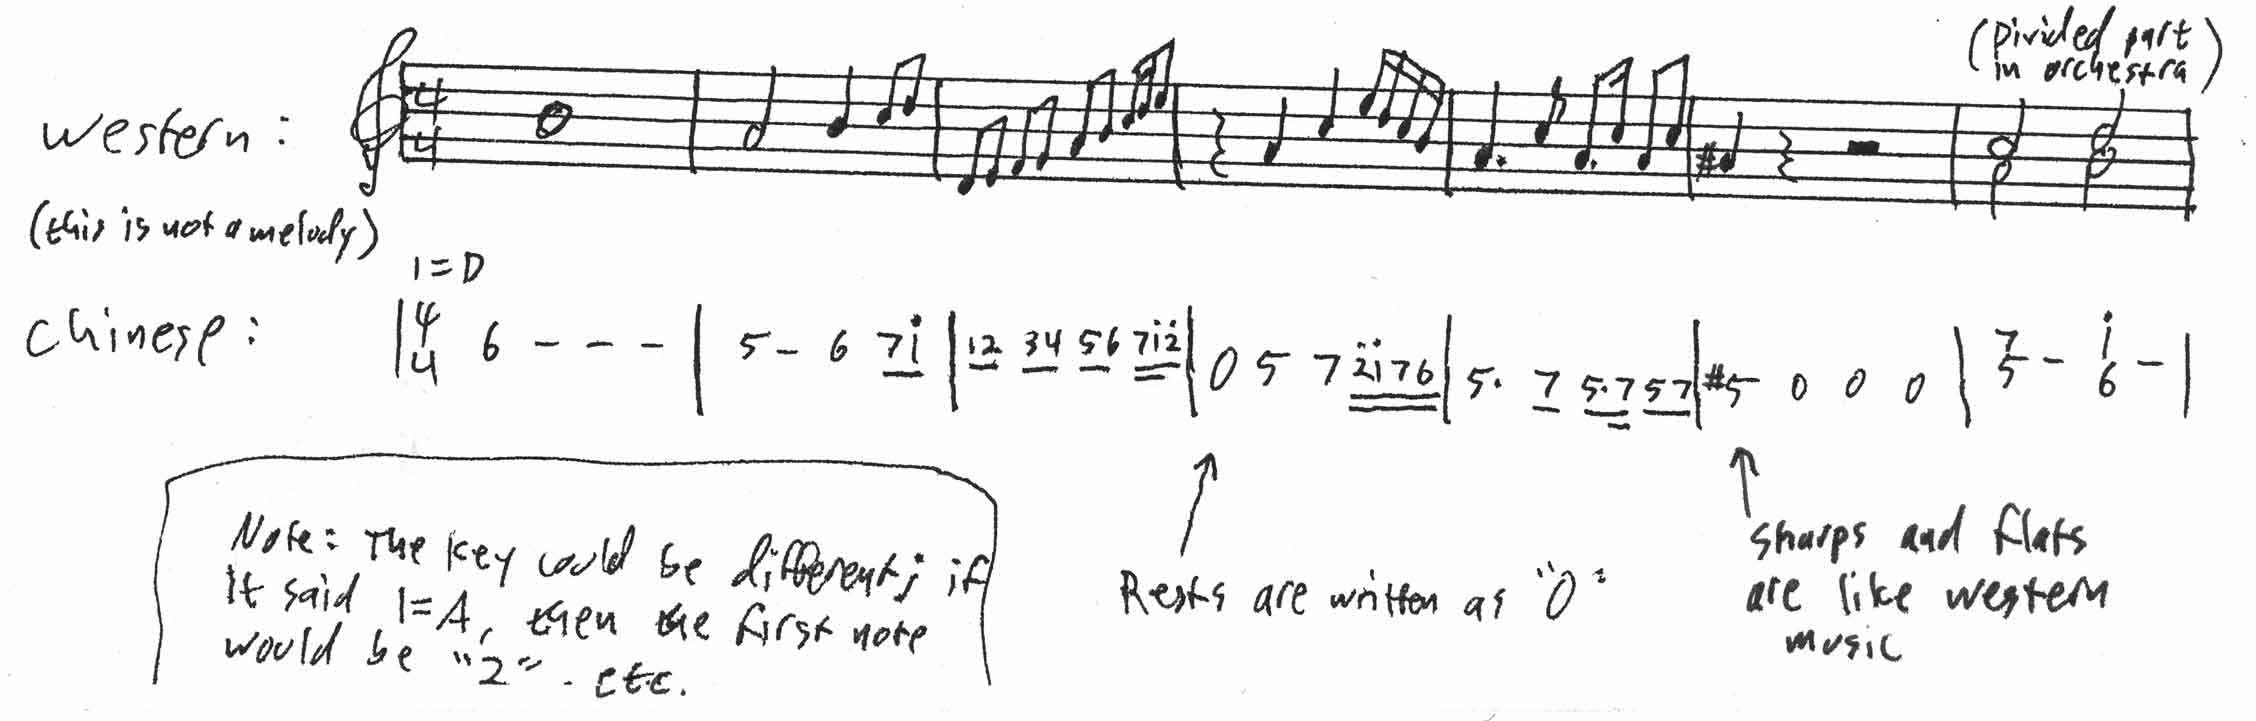 (Divided part
in orchestra)
western:
4
4
#
(this is not a melody)
1=D
Chinese: | 4/4 6 - - - | 5 - 6 7i̇ | 12 34 56 7i̇2̇ | 0 5 7 2̇i̇76 | 5. 7 5.7 57 | #5 0 0 0 | 7/5 - i̇/6 - |
Note: The key could be different; if
it said 1=A, then the first note
would be "2" - etc.
Rests are written as "0"
sharps and flats
are like western
music